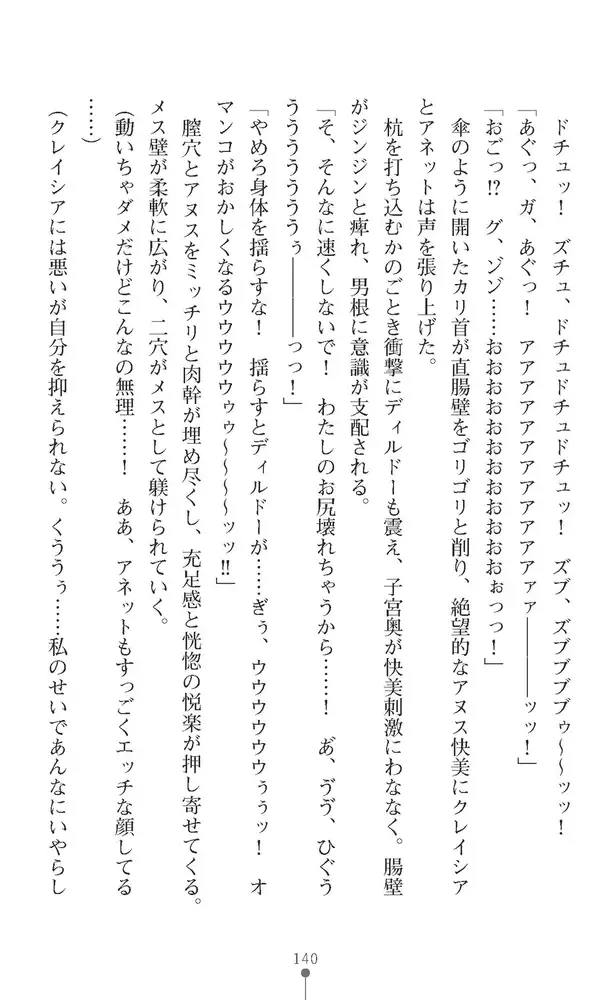 ドチュッ！　ズチュ、ドチュドチュッ！　ズブ、ズブブブゥ～～ッッ！
「あぐっ、ガ、あぐっ！　アアアアアアアアアアアァァ――――ッッ！」
「おごっ!?　グ、ゾゾ……おおおおおおおおおおおおおぉっっ！」
傘のように開いたカリ首が直腸壁をゴリゴリと削り、絶望的なアヌス快美にクレイシア
とアネットは声を張り上げた。
杭を打ち込むかのごとき衝撃にディルドーも震え、子宮奥が快美刺激にわななく。腸壁
がジンジンと痺れ、男根に意識が支配される。
「そ、そんなに速くしないで！　わたしのお尻壊れちゃうから……！　あ゛、ゔゔ、ひぐう
うううううぅ――――っっ！」
「やめろ身体を揺らすな！　揺らすとディルドーが……ぎぅ、ウウウウウウぅぅッ！　オ
マンコがおかしくなるウウウウウゥゥ～～～～ッッ!!」
膣穴とアヌスをミッチリと肉幹が埋め尽くし、充足感と恍惚の悦楽が押し寄せてくる。
メス壁が柔軟に広がり、二穴がメスとして躾けられていく。
（動いちゃダメだけどこんなの無理……！　ああ、アネットもすっごくエッチな顔してる
……）
（クレイシアには悪いが自分を抑えられない。くううぅ……私のせいであんなにいやらし
140